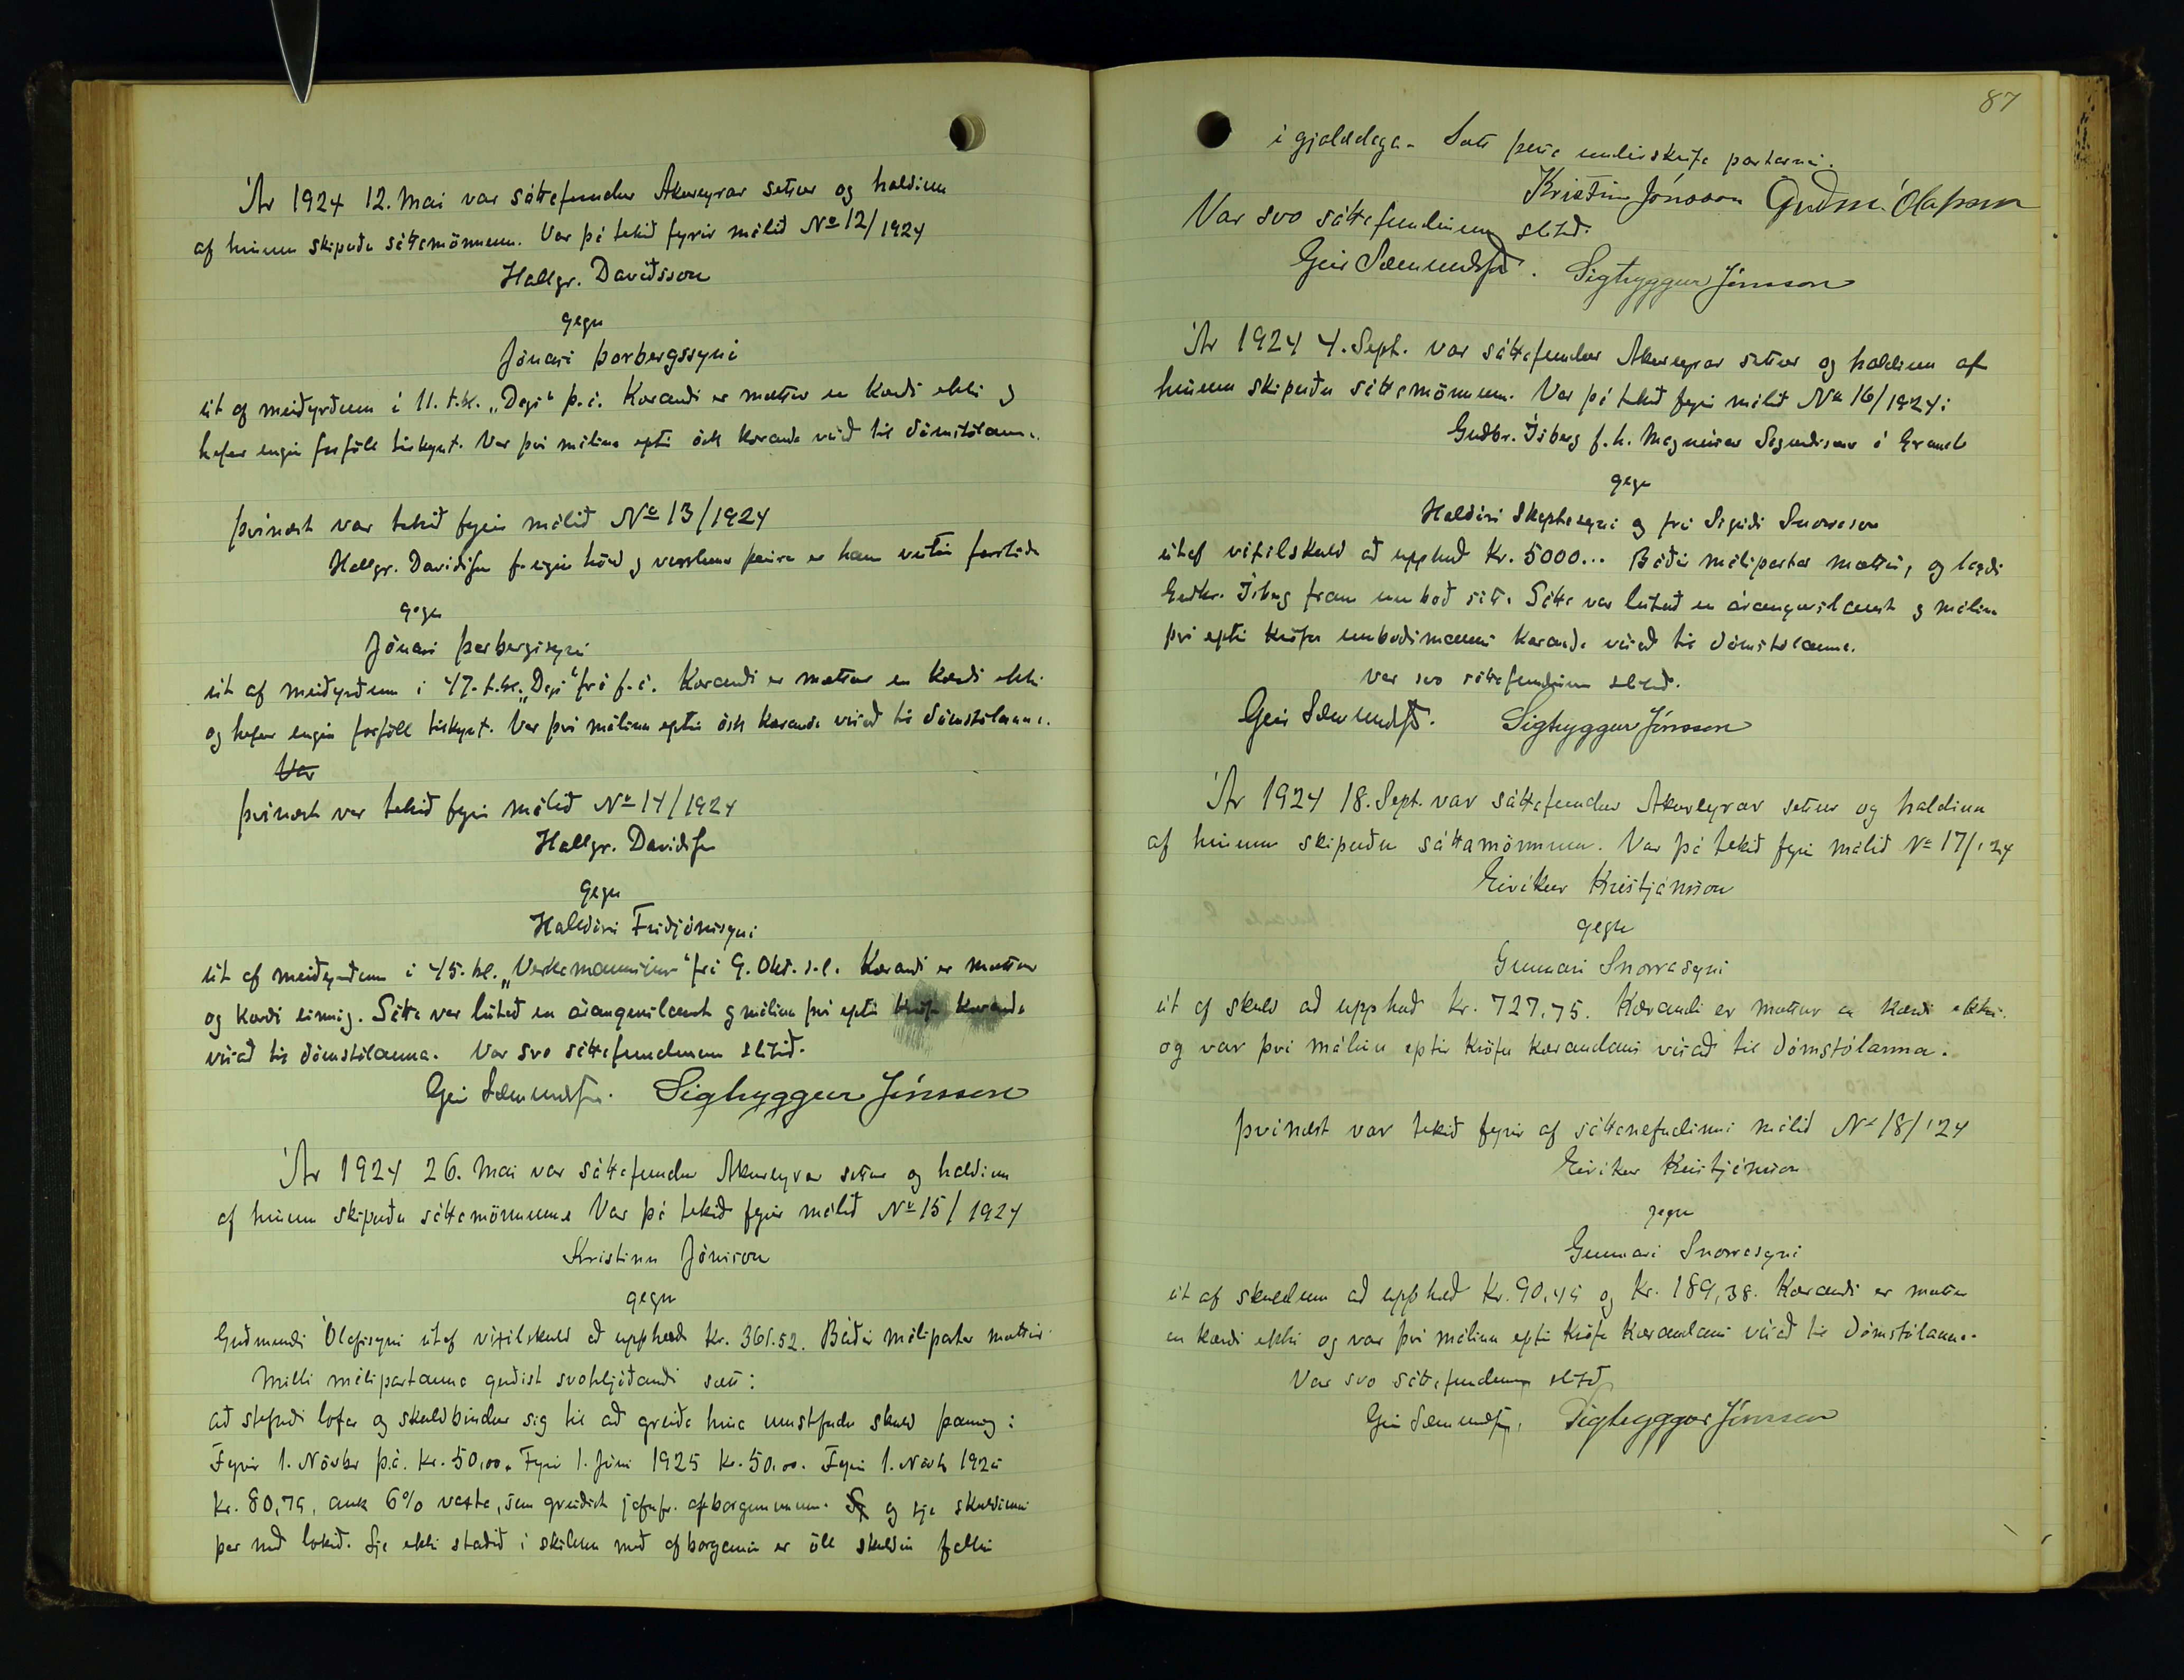 Ár 1924 12. Mai var sáttafundur Akureyrar settur og haldinn
af hinum skipuðu sáttamönnum. Var þá tekið fyrir málið No 12/1924
Hallgr. Davíðsson
gegn
Jónasi Þorbergssyni
út af meiðyrðum í 11. t.bl. „Dags“ þ.á. Kærandi er mættur en kærði ekki og
hefur engin forföll tilkynt. Var því málinu eptir ósk kæranda vísað til dómstólanna.
Þvínæst var tekið fyrir málið No 13/1924
Hallgr. Davíðsson f. eigin hönd og verslunar þeirrar er hann veitir forstöðu
gegn
Jónasi Þorbergssyni
út af meiðyrðum í 47. t.bl. „Dags“ frá f.á. Kærandi er mættur en kærði ekki
og hefur engin forföll tilkynt. Var því málinu eptir ósk kæranda vísað til dómstólanna.
Var
Þvínæst var tekið fyrir málið No 14/1924
Hallgr. Davíðsson
gegn
Halldóri Friðjónssyni
út af meiðyrðum í 45. bl. „Verkamannsins“ frá 9. Okt. s.l. Kærandi er mættur
og kærði einnig. Sátta var leitað en árangurslaust og málinu því eptir kröfu kæranda
vísað til dómstólanna. Var svo sáttafundinum slitið.
Geir Sæmundsson. Sigtryggur Jónsson
Ár 1924 26. Mai var sáttafundur Akureyrar settur og haldinn
af hinum skipuðu sáttamönnum. Var þá tekið fyrir málið No 15/1924
Kristinn Jónsson
gegn
Guðmundi Ólafssyni útaf víxilskuld að upphæð kr. 361.52. Báðir málspartar mættir.
Milli málspartanna gerðist svohljóðandi sætt:
að stefndi lofar og skuldbindur sig til að greiða hina umstefndu skuld þannig:
Fyrir 1. Nóvbr þ.á. kr. 50,00. Fyrir 1. Júní 1925 kr. 50,00. Fyrir 1. Nóvb 1925
kr. 80,75, auk 6% vaxta, sem greiðist jafnfr. afborgunum. og sje skuldinni
þar með lokið. Sje ekki staðið í skilum með afborganir er öll skuldin fallin
87
í gjalddaga. Sætt þessa undirskrifa partarnir.
Kristinn Jónsson Guðm. Ólafsson
Var svo sáttafundinum slitið.
Geir Sæmundsson. Sigtryggur Jónsson
Ár 1924 4. Sept. var sáttafundur Akureyrar settur og haldinn af
hinum skipuðu sáttamönnum. Var þá tekið fyrir málið No 16/1924:
Guðbr. Ísberg f.h. Magnúsar Sigurðssonar á Grund
gegn
Halldóri Skaptasyni og frú Sigríði Snorrason
útaf víxilskuld að upphæð Kr. 5000... Báðir málspartar mættir, og lagði
Guðbr. Ísberg fram umboð sitt. Sátta var leitað en árangurslaust og málinu
því eptir kröfu umboðsmanns kæranda vísað til dómstólanna.
Var svo sáttafundinum slitið.
Geir Sæmundsson. Sigtryggur Jónsson
Ár 1924 18. Sept. var sáttafundur Akureyrar settur og haldinn
af hinum skipuðu sáttamönnum. Var þá tekið fyrir málið No 17/'24
Eiríkur Kristjánsson
gegn
Gunnari Snorrasyni
út af skuld að upphæð kr. 727,75. Kærandi er mættur en kærði ekki
og var því málinu eptir kröfu kærandans vísað til dómstólanna.
Þvínæst var tekið fyrir af sáttanefndinni málið No 18/'24
Eiríkur Kristjánsson
gegn
Gunnari Snorrasyni
út af skuldum að upphæð Kr. 90,45 og Kr. 189,38. Kærandi er mættur
en kærði ekki og var því málinu eptir kröfu kærandans vísað til dómstólanna.
Var svo sáttafundinum slitið
Geir Sæmundsson. Sigtryggur Jónsson